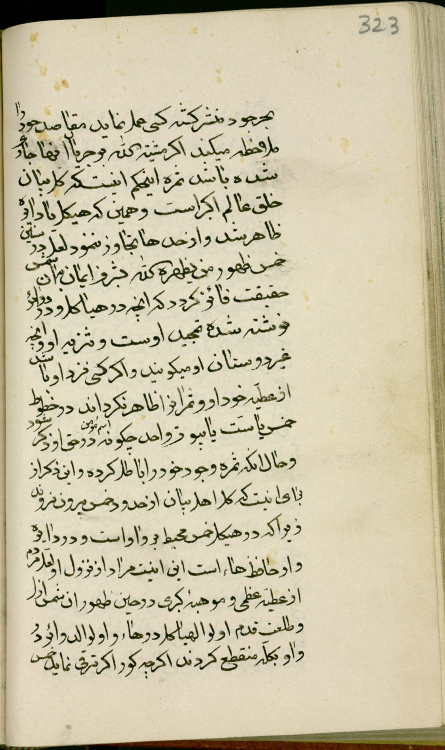 323
بحر جود منشر کشته کسی عمل نماید مقاصد خود را
ملاحظه میکند اکر مثبته کلله فوحرفا انها جا
شده باشد ثمره اینحکم اینست که کل بیان
خلق عالم اکبر است و همین که هیکل با دائره
ظاهر شد و از حد ها تجاوز ننمود لعل در
خمس ظهور من یظهره الله بشرف ایمان بان شمس
حقیقت فائز کردد که انچه در هیاکل و دوائر
نوشته شده تمجید اوست و تنزیه او و انچه
غیر دوستان او میکویند و اکر کسی فرد او باشد
از عطیه خود او و ثمرا نرا ظاهر نکرداند در خطوط
خمس یا ست یا بیوز واحد چکونه در حق او ذکر شود
و حال انکه ثمره وجود خود را باطل کرده و این ذکر از
برای اینست که کل اهل بیان از حدود خمس بیرون نروند
زیرا که در هیکل خمس محیط بر واو است و در دائره
واو حافظ هاء است این اینست مراد از نزول او لعل مردم
از عطیه عظمی و موهبه کبری در حین ظهور ان شمس ازل
و طلعت قدم اولو الهیاکل در هاء و اولو الدوائر در
واو بکله منقطع کردند اکرچه کور اکر ترقی نماید خمس